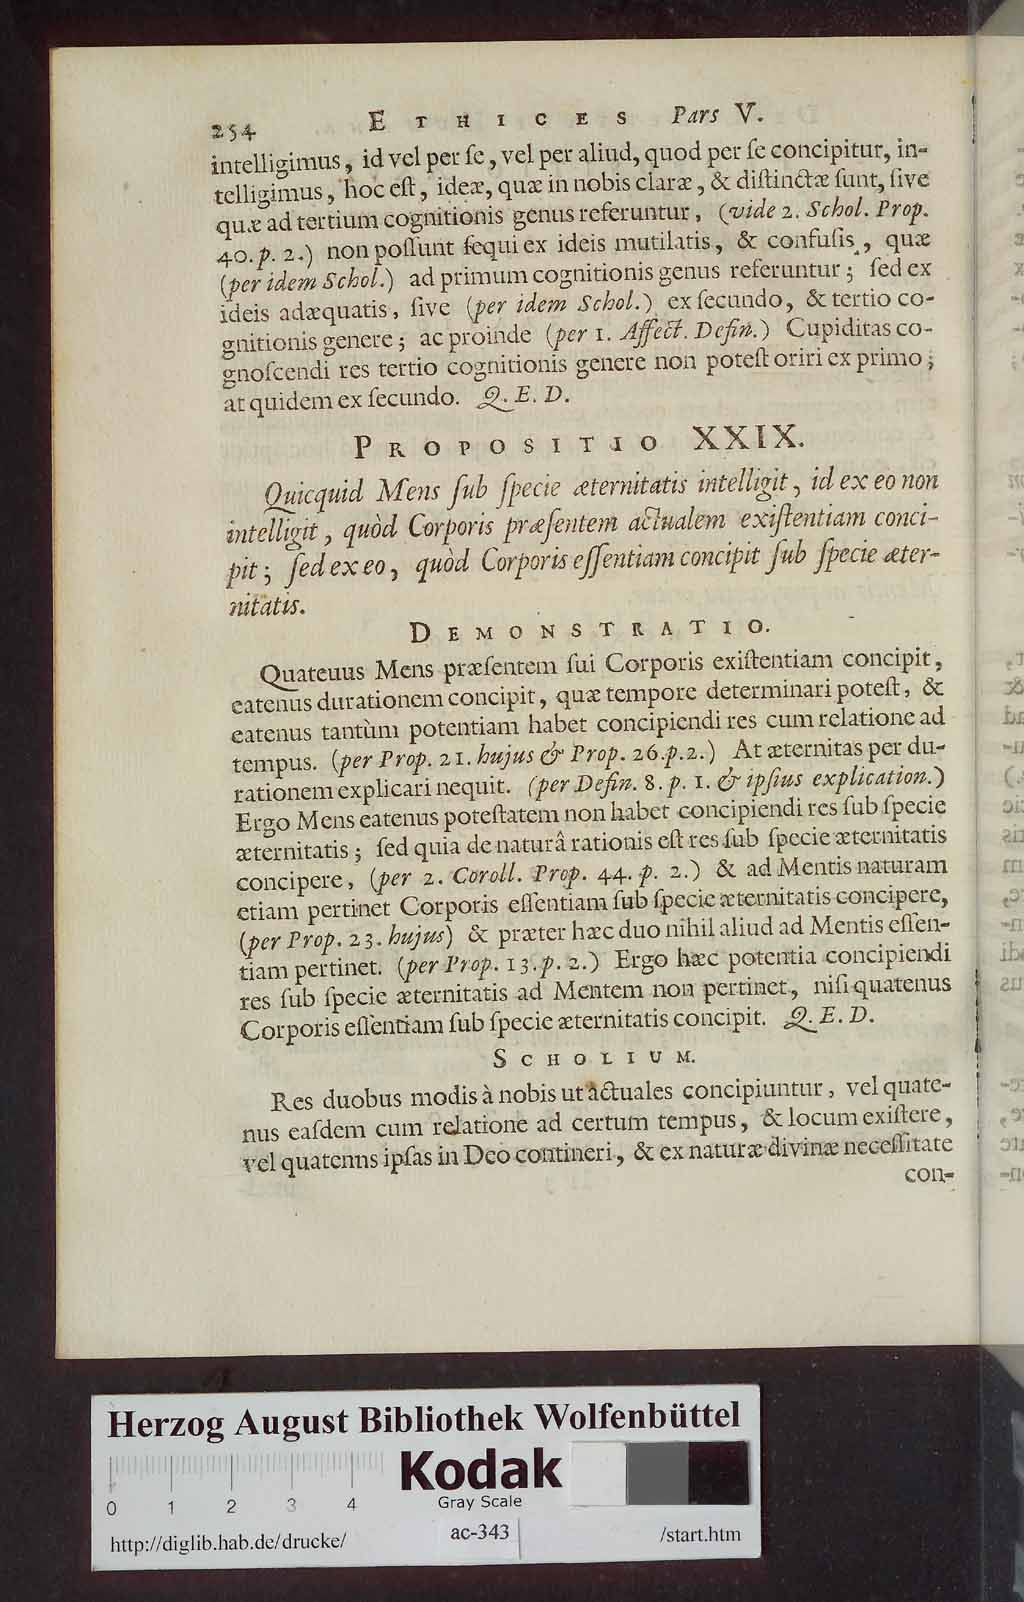 254 ETHICES Pars V.
intelligimus, id vel per ſe, vel per aliud, quod per ſe concipitur, in-
telligimus, hoc eſt, ideæ, quæ in nobis claræ, & diſtinctæ ſunt, ſive
quæ ad tertium cognitionis genus referuntur, (vide 2. Schol. Prop.
40. p. 2.) non poſſunt ſequi ex ideis mutilatis, & confuſis, quæ
(per idem Schol.) ad primum cognitionis genus referuntur; ſed ex
ideis adæquatis, ſive (per idem Schol.) ex ſecundo, & tertio co-
gnitionis genere; ac proinde (per 1. Affect. Defin.) Cupiditas co-
gnoſcendi res tertio cognitionis genere non poteſt oriri ex primo;
at quidem ex ſecundo. Q. E. D.
PROPOSITIO XXIX.
Quicquid Mens ſub ſpecie æternitatis intelligit, id ex eo non
intelligit, quòd Corporis præſentem actualem exiſtentiam conci-
pit; ſed ex eo, quòd Corporis eſſentiam concipit ſub ſpecie æter-
nitatis.
DEMONSTRATIO.
Quateuus Mens præſentem ſui Corporis exiſtentiam concipit,
eatenus durationem concipit, quæ tempore determinari poteſt, &
eatenus tantùm potentiam habet concipiendi res cum relatione ad
tempus. (per Prop. 21. hujus & Prop. 26. p. 2.) At æternitas per du-
rationem explicari nequit. (per Defin. 8. p. 1. & ipſius explication.)
Ergo Mens eatenus poteſtatem non habet concipiendi res ſub ſpecie
æternitatis; ſed quia de naturâ rationis eſt res ſub ſpecie æternitatis
concipere, (per 2. Coroll. Prop. 44. p. 2.) & ad Mentis naturam
etiam pertinet Corporis eſſentiam ſub ſpecie æternitatis concipere,
(per Prop. 23. hujus) & præter hæc duo nihil aliud ad Mentis eſſen-
tiam pertinet. (per Prop. 13. p. 2.) Ergo hæc potentia concipiendi
res ſub ſpecie æternitatis ad Mentem non pertinet, niſi quatenus
Corporis eſſentiam ſub ſpecie æternitatis concipit. Q. E. D.
SCHOLIUM.
Res duobus modis à nobis ut actuales concipiuntur, vel quate-
nus eaſdem cum relatione ad certum tempus, & locum exiſtere,
vel quatenns ipſas in Deo contineri, & ex naturæ divinæ neceſſitate
con-
Herzog August Bibliothek Wolfenbüttel
Kodak
Gray Scale
0 1 2 3 4
http://diglib.hab.de/drucke/ ac-343 /start.htm